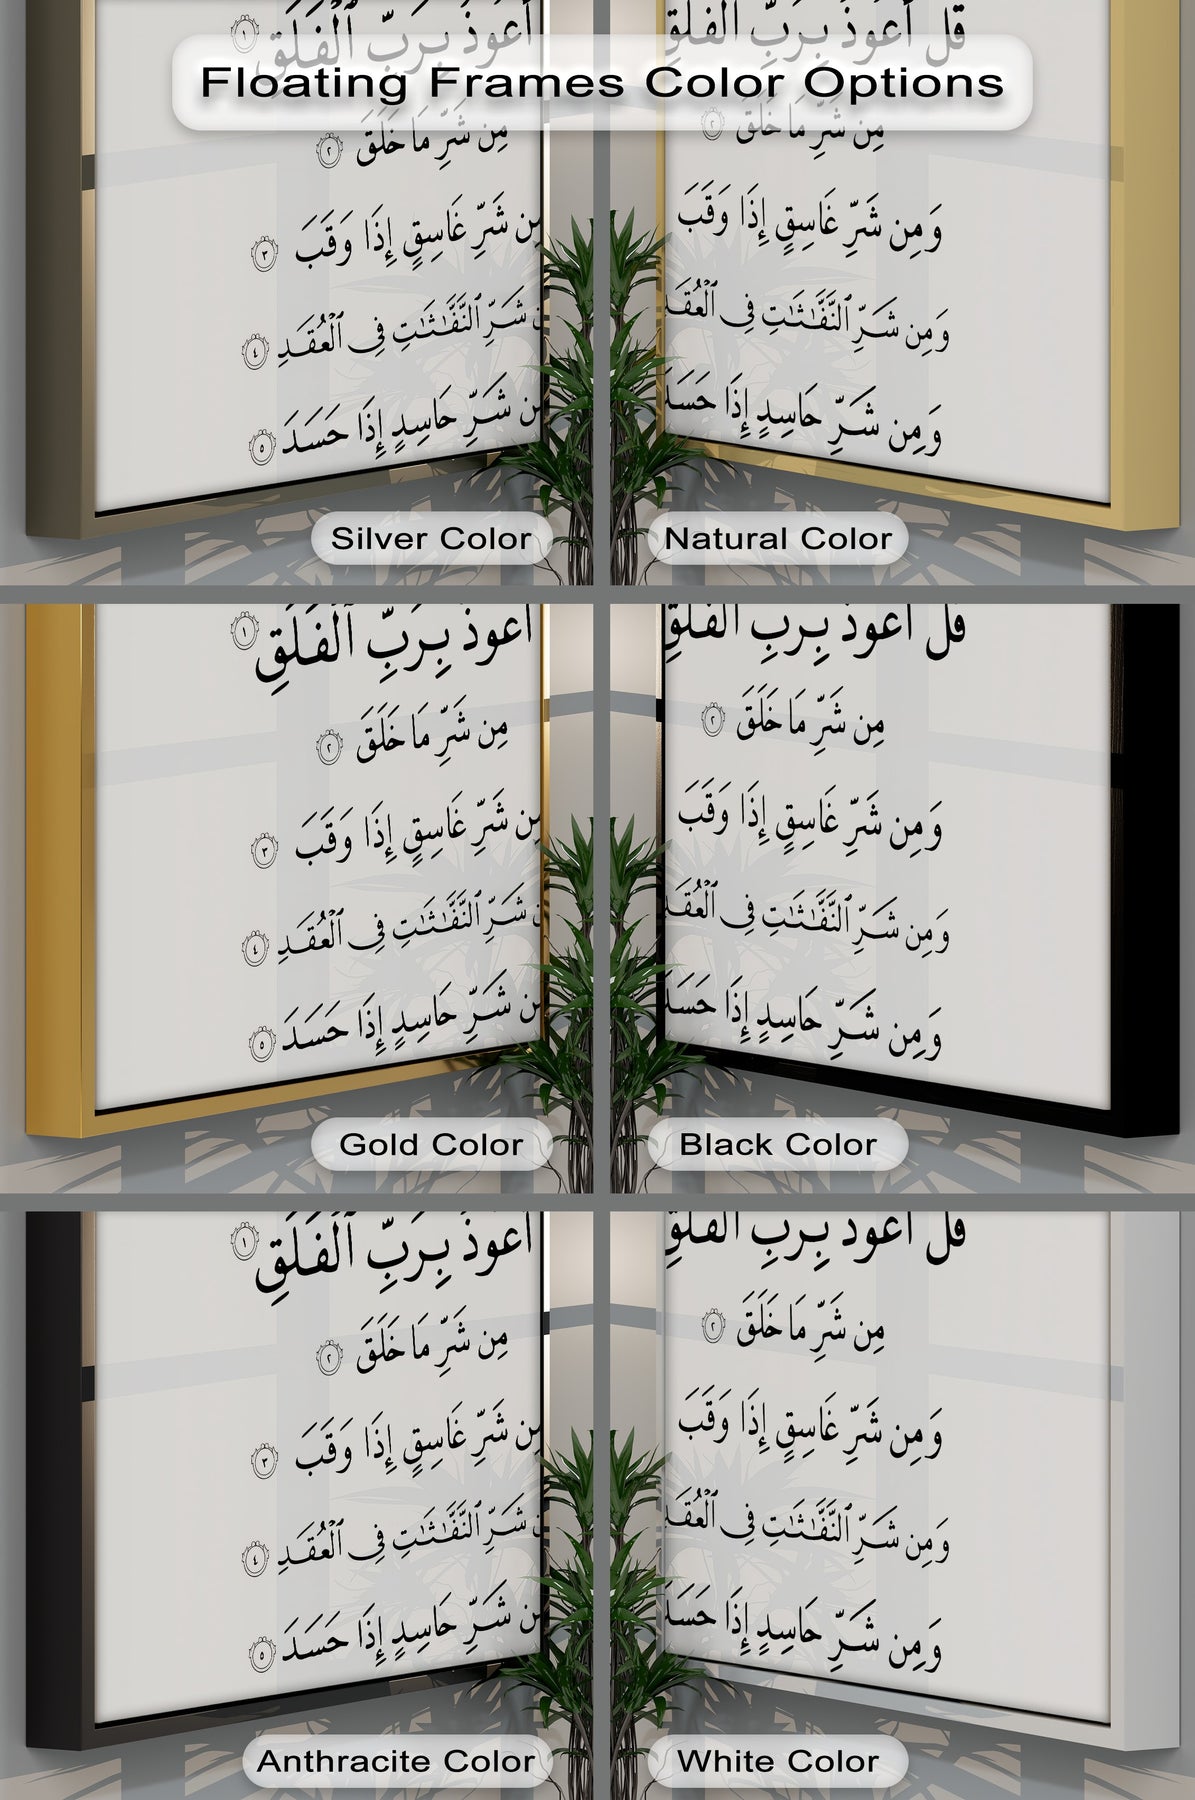 Floating Frames Color Options
أَعُوذُ بِرَبِّ ٱلْفَلَقِ ١
مِن شَرِّ مَا خَلَقَ ٢
مِن شَرِّ غَاسِقٍ إِذَا وَقَبَ ٣
شَرِّ ٱلنَّفَّٰثَٰتِ فِى ٱلْعُقَدِ ٤
مِن شَرِّ حَاسِدٍ إِذَا حَسَدَ ٥
Silver Color
قُلْ أَعُوذُ بِرَبِّ ٱلْفَلَقِ
مِن شَرِّ مَا خَلَقَ ٢
وَمِن شَرِّ غَاسِقٍ إِذَا وَقَبَ
وَمِن شَرِّ ٱلنَّفَّٰثَٰتِ فِى ٱلْعُقَدِ
وَمِن شَرِّ حَاسِدٍ إِذَا حَسَدَ
Natural Color
أَعُوذُ بِرَبِّ ٱلْفَلَقِ ١
مِن شَرِّ مَا خَلَقَ ٢
مِن شَرِّ غَاسِقٍ إِذَا وَقَبَ ٣
شَرِّ ٱلنَّفَّٰثَٰتِ فِى ٱلْعُقَدِ ٤
مِن شَرِّ حَاسِدٍ إِذَا حَسَدَ ٥
Gold Color
قُلْ أَعُوذُ بِرَبِّ ٱلْفَلَقِ
مِن شَرِّ مَا خَلَقَ ٢
وَمِن شَرِّ غَاسِقٍ إِذَا وَقَبَ
وَمِن شَرِّ ٱلنَّفَّٰثَٰتِ فِى ٱلْعُقَدِ
وَمِن شَرِّ حَاسِدٍ إِذَا حَسَدَ
Black Color
أَعُوذُ بِرَبِّ ٱلْفَلَقِ ١
مِن شَرِّ مَا خَلَقَ ٢
مِن شَرِّ غَاسِقٍ إِذَا وَقَبَ ٣
شَرِّ ٱلنَّفَّٰثَٰتِ فِى ٱلْعُقَدِ ٤
مِن شَرِّ حَاسِدٍ إِذَا حَسَدَ ٥
Anthracite Color
قُلْ أَعُوذُ بِرَبِّ ٱلْفَلَقِ
مِن شَرِّ مَا خَلَقَ ٢
وَمِن شَرِّ غَاسِقٍ إِذَا وَقَبَ
وَمِن شَرِّ ٱلنَّفَّٰثَٰتِ فِى ٱلْعُقَدِ
وَمِن شَرِّ حَاسِدٍ إِذَا حَسَدَ
White Color